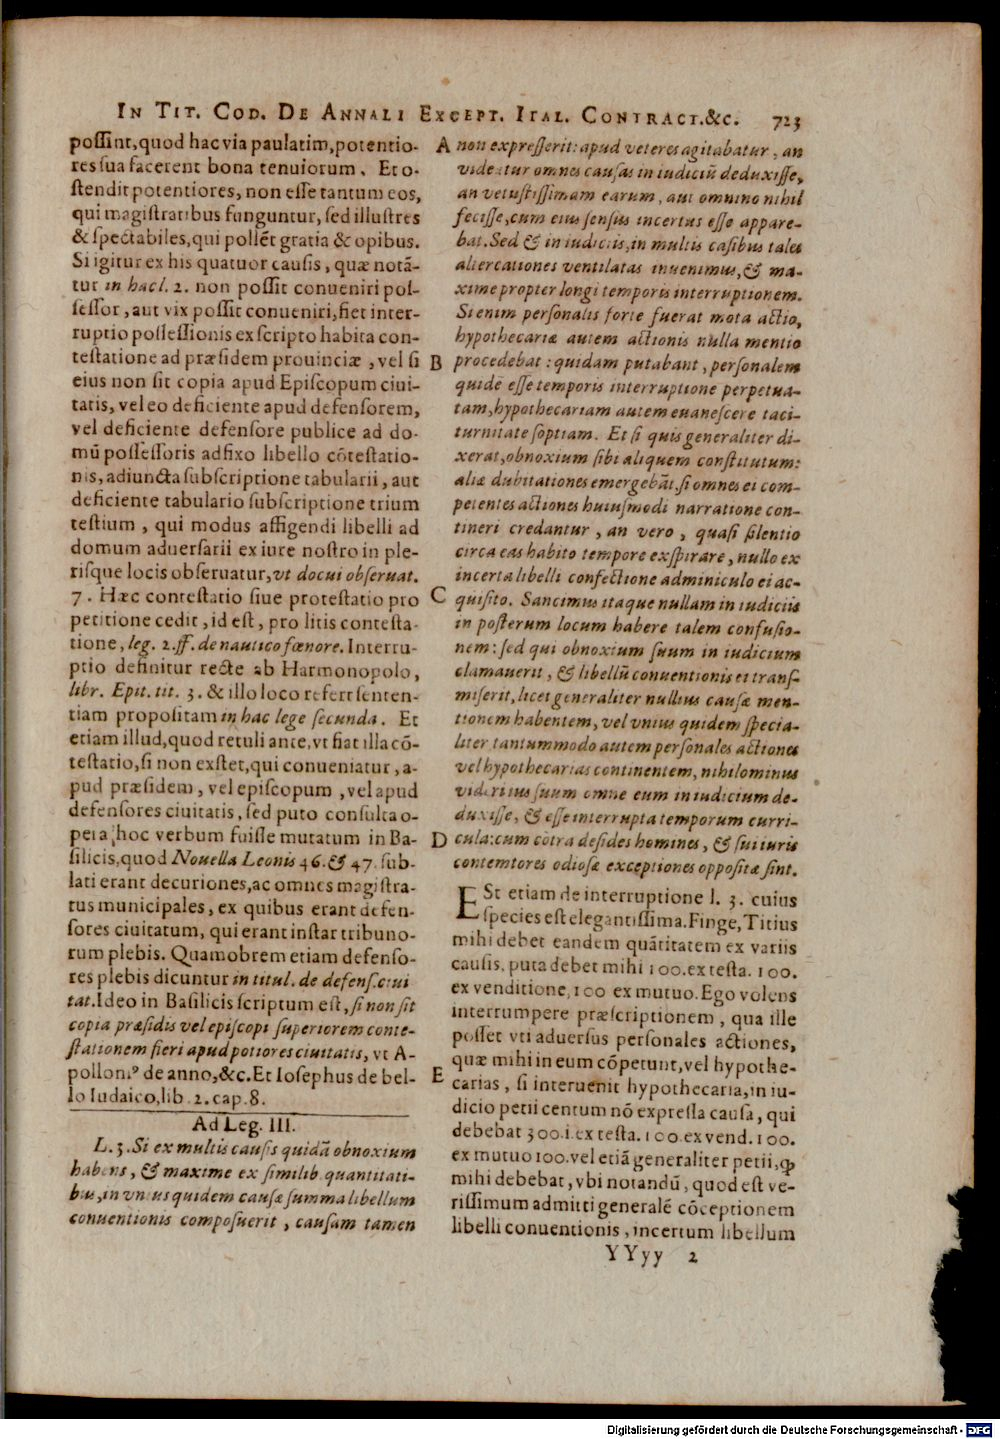 IN TIT. COD. DE ANNALI EXCEPT. ITAL. CONTRACT.&c. 723
possint,quod hac via paulatim,potentio-
res sua facerent bona tenuiorum. Et o-
stendit potentiores, non esse tantum eos,
qui magistratibus funguntur, sed illustres
& spectabiles,qui pollẽt gratia & opibus.
Si igitur ex his quatuor causis, quæ notã-
tur in hac l. 2. non possit conueniri pos-
sessor, aut vix possit conueniri, fiet inter-
ruptio possessionis ex scripto habita con-
testatione ad præsidem prouinciæ, vel si
eius non sit copia apud Episcopum ciui-
tatis, vel eo deficiente apud defensorem,
vel deficiente defensore publice ad do-
mũ possessoris adfixo libello cõtestatio-
nis, adiuncta subscriptione tabularii, aut
deficiente tabulario subscriptione trium
testium, qui modus affigendi libelli ad
domum aduersarii ex iure nostro in ple-
risque locis obseruatur, vt docui obseruat.
7. Hæc contestatio siue protestatio pro
petitione cedit, id est, pro litis contesta-
tione, leg. 2. ff. de nautico fœnore. Interru-
ptio definitur recte ab Harmonopolo,
libr. Epit. tit. 3. & illo loco refert senten-
tiam propositam in hac lege secunda. Et
etiam illud,quod retuli ante,vt fiat illa cõ-
testatio, si non exstet, qui conueniatur, a-
pud præsidem, vel episcopum, vel apud
defensores ciuitatis, sed puto consulta o-
pera hoc verbum fuisse mutatum in Ba-
silicis,quod Nouella Leonis 46. & 47. sub-
lati erant decuriones, ac omnes magistra-
tus municipales, ex quibus erant defen-
sores ciuitatum, qui erant instar tribuno-
rum plebis. Quamobrem etiam defenso-
res plebis dicuntur in titul. de defens. ciui
tat. Ideo in Basilicis scriptum est, si non sit
copia præsidis vel episcopi superiorem conte-
stationem fieri apud potiores ciuitatis, vt A-
pollonꝰ de anno,&c. Et Iosephus de bel-
lo Iudaico,lib. 2. cap. 8.
Ad Leg. III.
L. 3. Si ex multis causis quidã obnoxium
habens, & maxime ex similib. quantitati-
bus, in vnius quidem causæ summa libellum
conuentionis composuerit, causam tamen
A non expresserit: apud veteres agitabatur, an
videretur omnes causas in iudiciũ deduxisse,
an vetustissimam earum, aut omnino nihil
fecisse, cum eius sensus incertus esse appare-
bat. Sed & in iudiciis, in multis casibus tales
altercationes ventilatas inuenimus, & ma-
xime propter longi temporis interruptionem.
Si enim personalis forte fuerat mota actio,
hypothecariæ autem actionis nulla mentio
B procedebat: quidam putabant, personalem
quidẽ esse temporis interruptione perpetua-
tam, hypothecariam autem euanescere taci-
turnitate sopitam. Et si quis generaliter di-
xerat, obnoxium sibi aliquem constitutum:
aliæ dubitationes emergebãt, si omnes ei com-
petentes actiones huiusmodi narratione con-
tineri credantur, an vero, quasi silentio
circa eas habito tempore exspirare, nullo ex
incerta libelli confectione adminiculo ei ac-
C quisito. Sancimus itaque nullam in iudiciis
in posterum locum habere talem confusio-
nem: sed qui obnoxium suum in iudicium
clamauerit, & libellũ conuentionis ei trans-
miserit, licet generaliter nullius causæ men-
tionem habentem, vel vnius quidem specia-
liter tantummodo autem personales actiones
vel hypothecarias continentem, nihilominus
videri ius suum omne eum in iudicium de-
duxisse, & esse interrupta temporum curri-
D cula: cum cõtra desides homines, & sui iuris
contemtores odiosæ exceptiones oppositæ sint.
ESt etiam de interruptione l. 3. cuius
species est elegantissima. Finge, Titius
mihi debet eandem quãtitatem ex variis
causis, puta debet mihi 100. ex testa. 100.
ex venditione, 100 ex mutuo. Ego volens
interrumpere præscriptionem, qua ille
posset vti aduersus personales actiones,
quæ mihi in eum cõpetunt, vel hypothe-
E carias, si interuenit hypothecaria, in iu-
dicio petii centum nõ expressa causa, qui
debebat 300. i. ex testa. 100. ex vend. 100.
ex mutuo 100. vel etiã generaliter petii, ꝙ
mihi debebat, vbi notandũ, quod est ve-
rissimum admitti generalẽ cõceptionem
libelli conuentionis, incertum libellum
YYyy 2
Digitalisierung gefördert durch die Deutsche Forschungsgemeinschaft - DFG